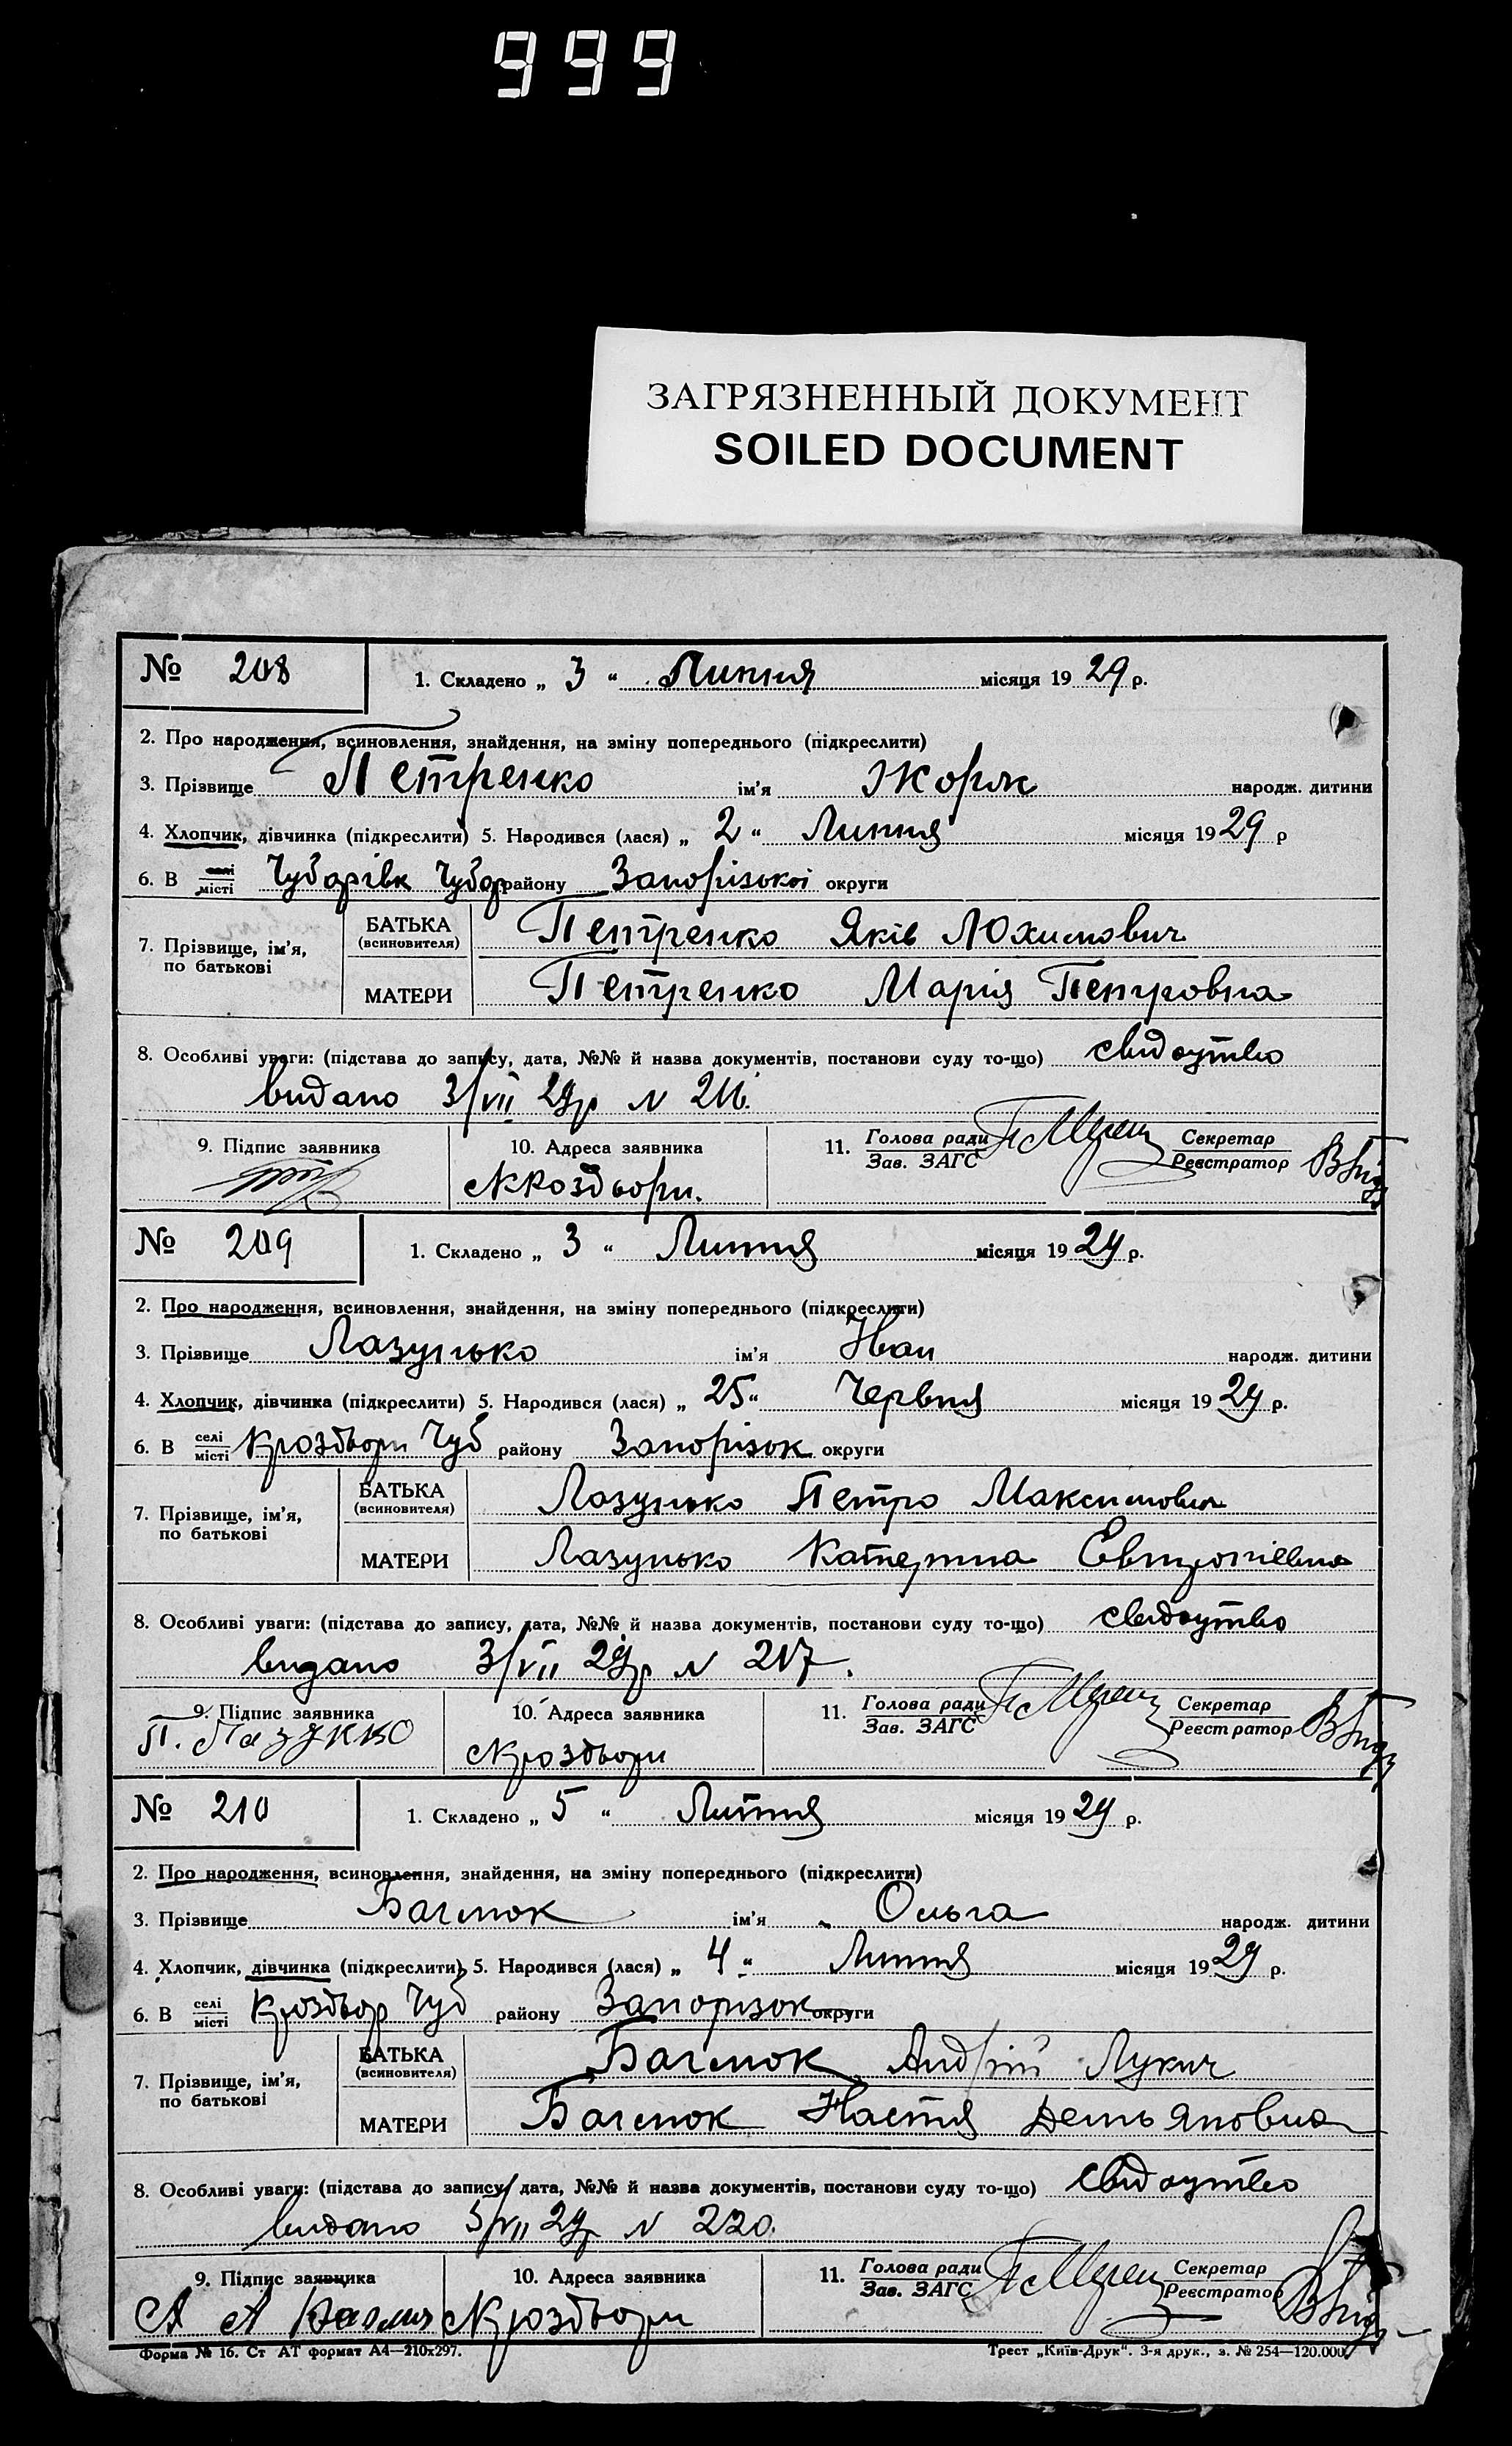 999
ЗАГРЯЗНЕННЫЙ ДОКУМЕНТ
SOILED DOCUMENT
№ 208 1. Складено „ 3 “ Липня місяця 19 29 р.
2. Про народження, всиновлення, знайдення, на зміну попереднього (підкреслити)
3. Прізвище Петренко ім'я народж. дитини
4. Хлопчик, дівчинка (підкреслити) 5. Народився (лася) „ 2 “ Липня місяця 19 29 р
6. В селі місті Чубарівк Чубар району Запорізької округи
7. Прізвище, ім'я, по батькові
БАТЬКА (всиновителя) Петренко Яків Юхимович
МАТЕРИ Петренко Марія Петровна
8. Особливі уваги: (підстава до запису, дата, №№ й назва документів, постанови суду то-що) свидоутво
видано 3/VII 29р N 216.
9. Підпис заявника 10. Адреса заявника 11. Голова ради Зав. ЗАГС Секретар Реєстратор
№ 209 1. Складено „ 3 “ Липня місяця 19 29 р.
2. Про народження, всиновлення, знайдення, на зміну попереднього (підкреслити)
3. Прізвище Лазунько ім'я Иван народж. дитини
4. Хлопчик, дівчинка (підкреслити) 5. Народився (лася) „ 25 “ Червня місяця 19 29 р.
6. В селі місті Кроздвори Чуб району Запорізок округи
7. Прізвище, ім'я, по батькові
БАТЬКА (всиновителя) Лазунько Петро Максимович
МАТЕРИ Лазунько Катерина
8. Особливі уваги: (підстава до запису, дата, №№ й назва документів, постанови суду то-що) свидоутво
видано 3/VII 29р N 217.
9. Підпис заявника 10. Адреса заявника 11. Голова ради Зав. ЗАГС Секретар Реєстратор
П. Кроздвори
№ 210 1. Складено „ 5 “ Липня місяця 19 29 р.
2. Про народження, всиновлення, знайдення, на зміну попереднього (підкреслити)
3. Прізвище Багмок ім'я Ольга народж. дитини
4. Хлопчик, дівчинка (підкреслити) 5. Народився (лася) „ 4 “ Липня місяця 19 29 р.
6. В селі місті Кроздвор Чуб району Запоризок округи
7. Прізвище, ім'я, по батькові
БАТЬКА (всиновителя) Багмок Андрій Лукич
МАТЕРИ Багмок Настя Демьяновна
8. Особливі уваги: (підстава до запису, дата, №№ й назва документів, постанови суду то-що) свидоутво
видано 5/VII 29р N 220.
9. Підпис заявника 10. Адреса заявника 11. Голова ради Зав. ЗАГС Секретар Реєстратор
Кроздвори
Форма № 16. Ст АТ формат А4—210х297. Трест „Київ-Друк“. 3-я друк., з. № 254—120.000